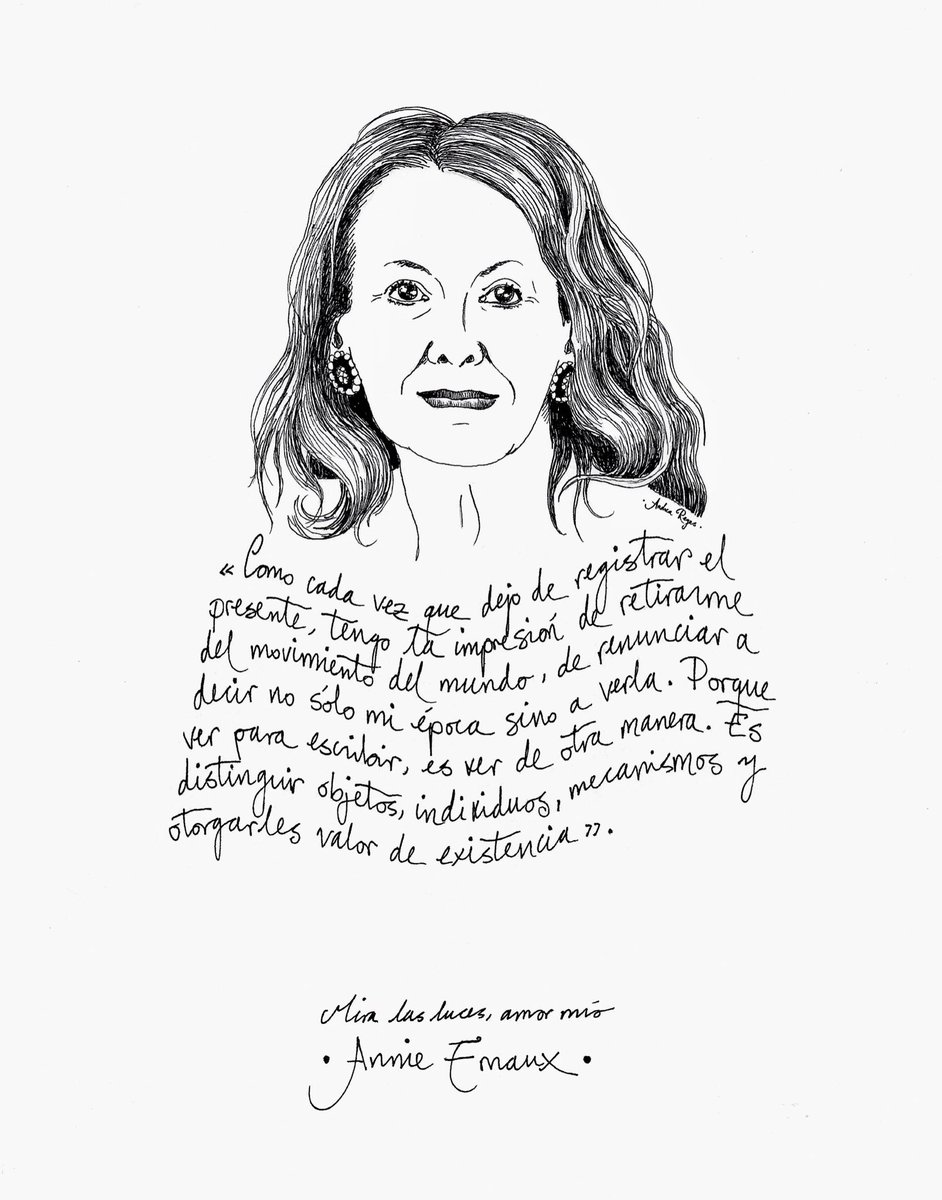 ·Andrea Reyes·
«Como cada vez que dejo de registrar el
presente, tengo la impresión de retirarme
del movimiento del mundo, de renunciar a
decir no sólo mi época sino a verla. Porque
ver para escribir, es ver de otra manera. Es
distinguir objetos, individuos, mecanismos y
otorgarles valor de existencia».
Mira las luces, amor mío
• Annie Ernaux •